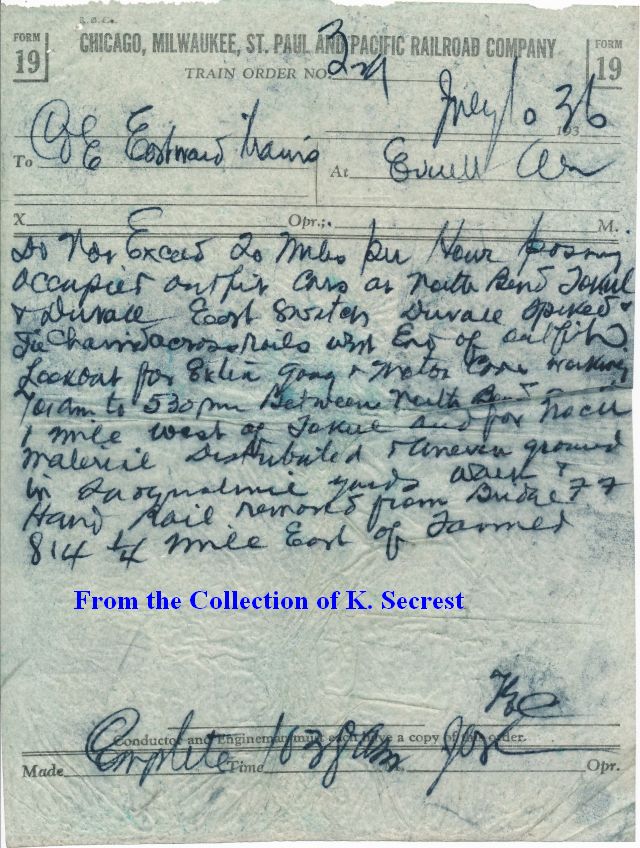 FORM 19
CHICAGO, MILWAUKEE, ST. PAUL AND PACIFIC RAILROAD COMPANY
FORM 19
TRAIN ORDER NO.
July 10 36
193
To C&E Eastward Trains
At Everett
X Opr.; M.
Do Not Exceed 20 Miles Per Hour passing
occupied outfit Cars at North Bend Tokul
& Duvall East Switch Duvall Spiked &
Tie Chained across rails west End of outfit
Lookout for Extra Gang & Motor Cars working
701am to 530pm Between North Bend and
1 mile west of Tokul and for
material Distributed & uneven ground
in Snoqualmie yards
Hand Rail removed from Bridge FF
814 1/4 mile East of
From the Collection of K. Secrest
Conductor and Engineman must each have a copy of this order.
Made Complete Time 1038 Am Opr.